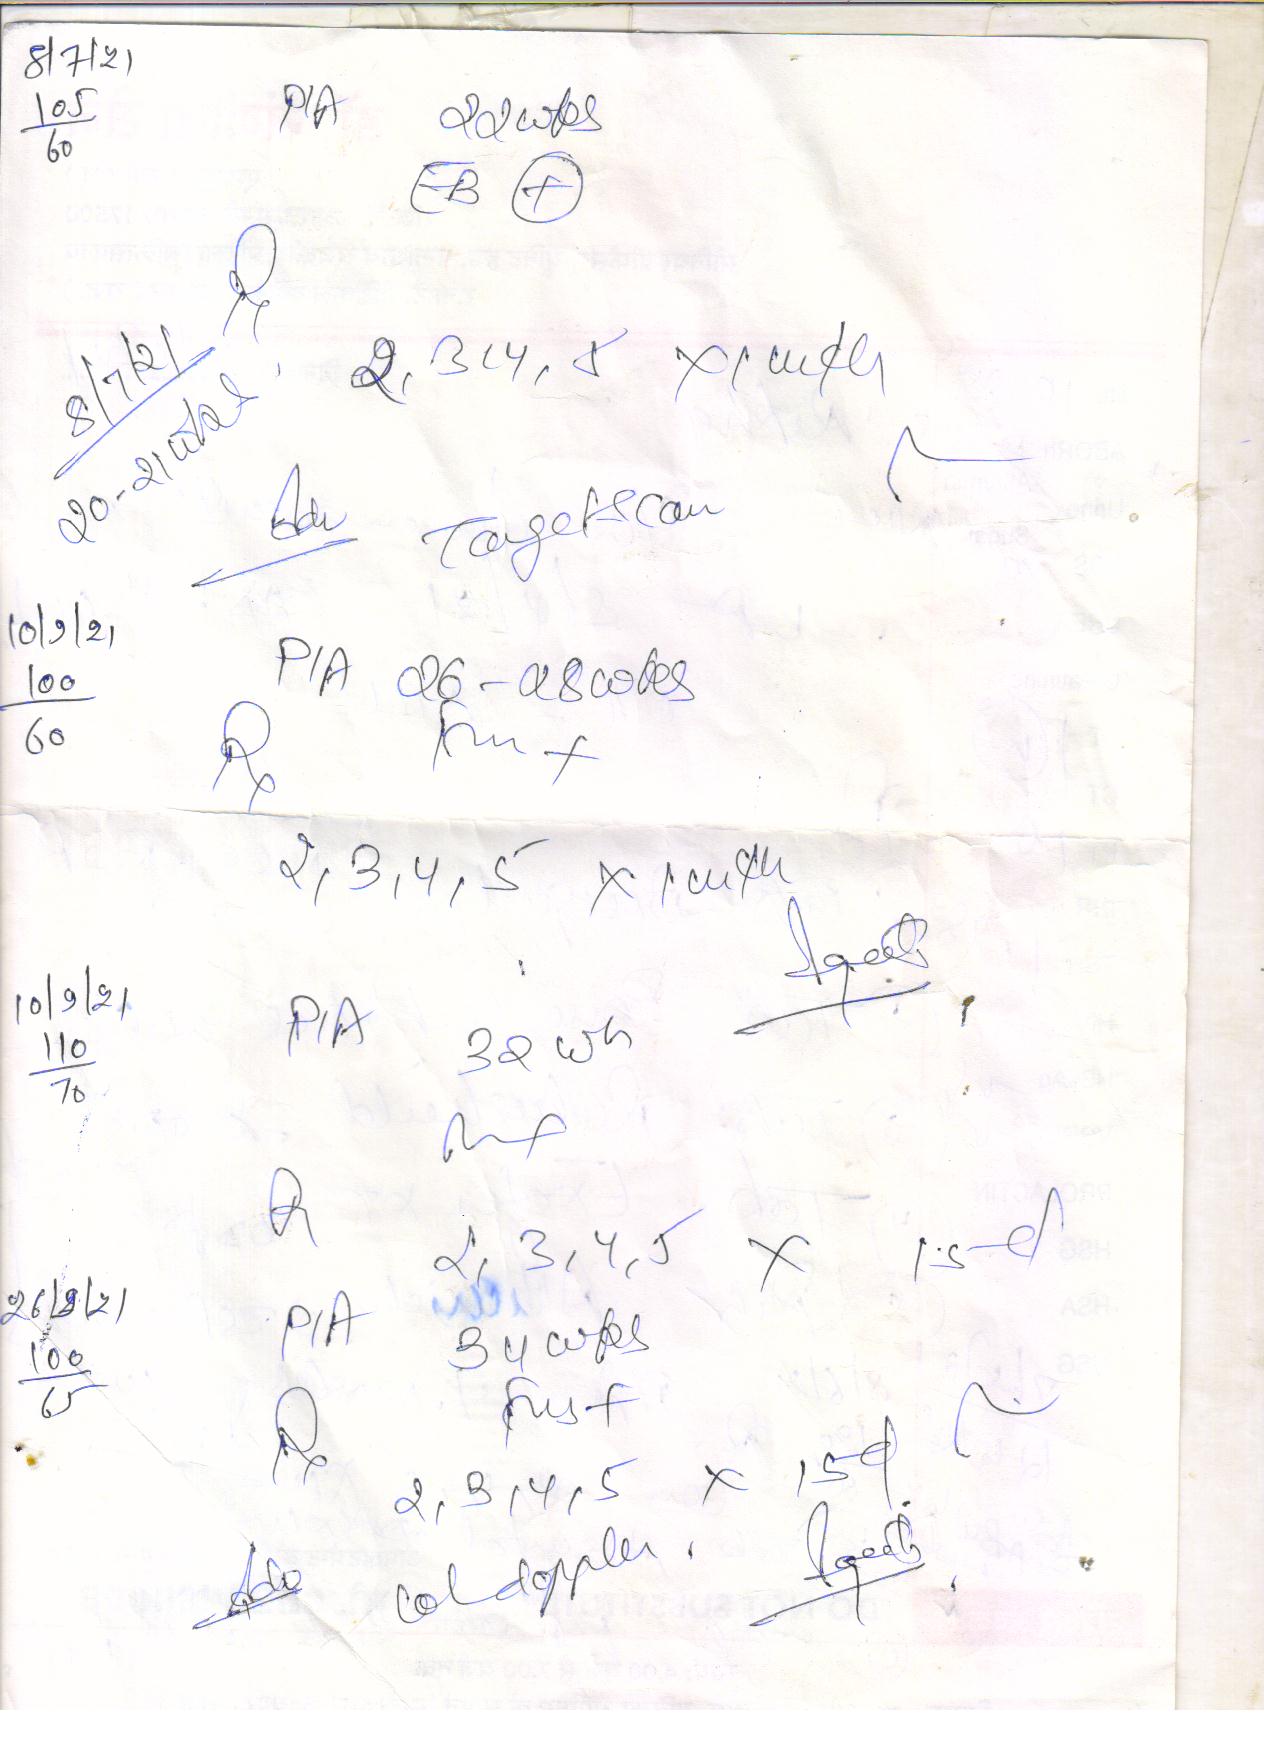 8/7/21
105
60
P/A 22 wks
EB +
Rx
8/7/21
20-21 wks
2, 3, 4, 5 x 1 mth
Adv Target scan
10/9/21
100
60
P/A 26-28 wks
FHS +
Rx
2, 3, 4, 5 x 1 mth
10/9/21
110
70
P/A 32 wks
R
2, 3, 4, 5 x 15 d
26/9/21
100
65
P/A 34 wks
FHS +
Rx
2, 3, 4, 5 x 15 d
Adv col doppler.